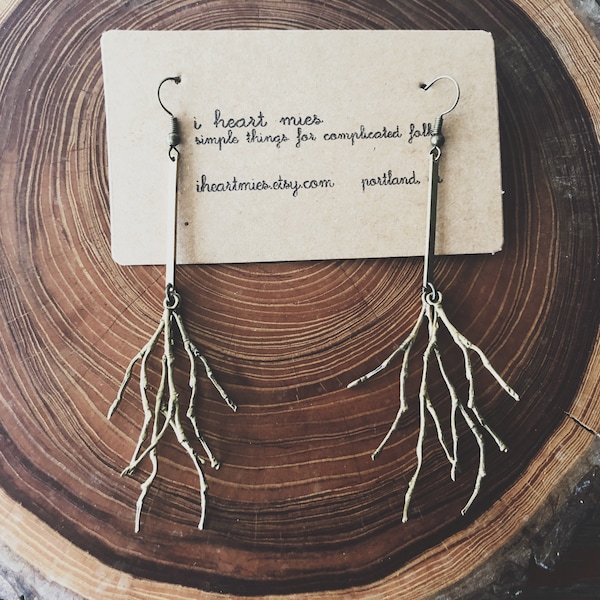 i heart mies
simple things for complicated folk
iheartmies.etsy.com portland,